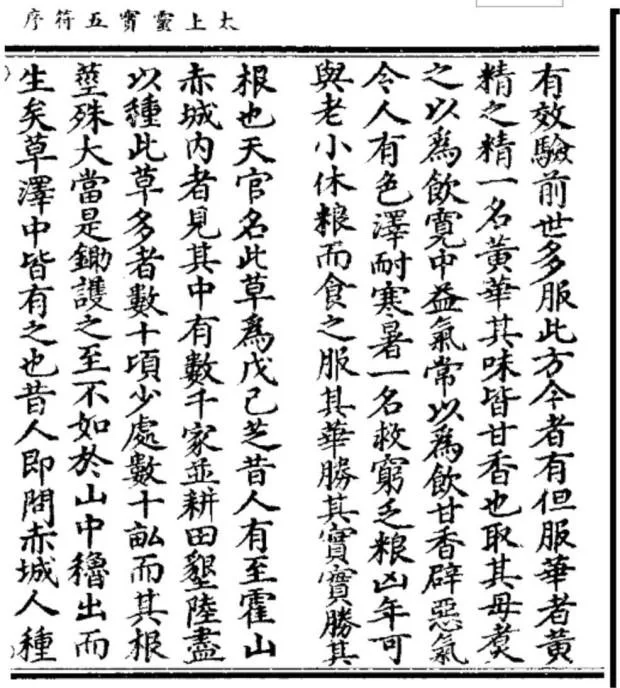 太上靈寶五符序
有效驗前世多服此方今者有但服華者黃
精之精一名黃華其味皆甘香也取其毋煑
之以為飲寬中益氣常以為飲甘香辟惡氣
令人有色澤耐寒暑一名救窮乏粮凶年可
與老小休粮而食之服其華勝其實實勝其
根也天官名此草為戊己芝昔人有至霍山
赤城內者見其中有數千家並耕田墾陸盡
以種此草多者數十頃少處數十畝而其根
莖殊大當是鋤護之至不如於山中穭出而
生矣草澤中皆有之也昔人即問赤城人種